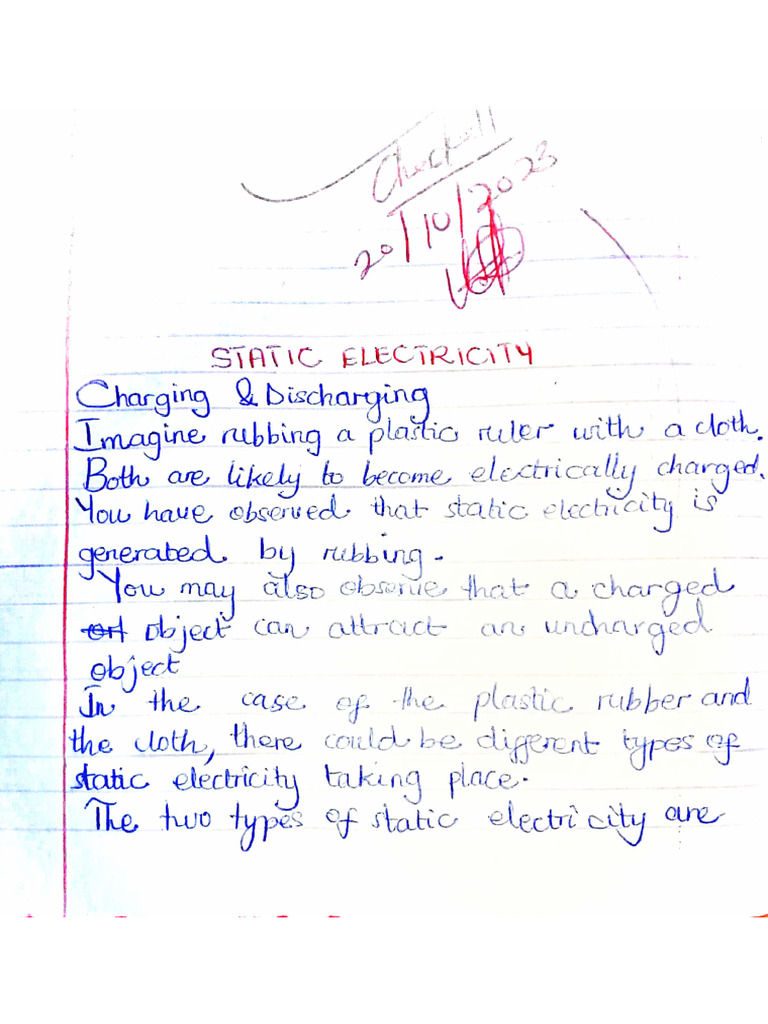 Checked
20/10/2023
STATIC ELECTRICITY
Charging & Discharging
Imagine rubbing a plastic ruler with a cloth.
Both are likely to become electrically charged.
You have observed that static electricity is
generated by rubbing.
You may also observe that a charged
object can attract an uncharged
object
In the case of the plastic rubber and
the cloth, there could be different types of
static electricity taking place.
The two types of static electricity are